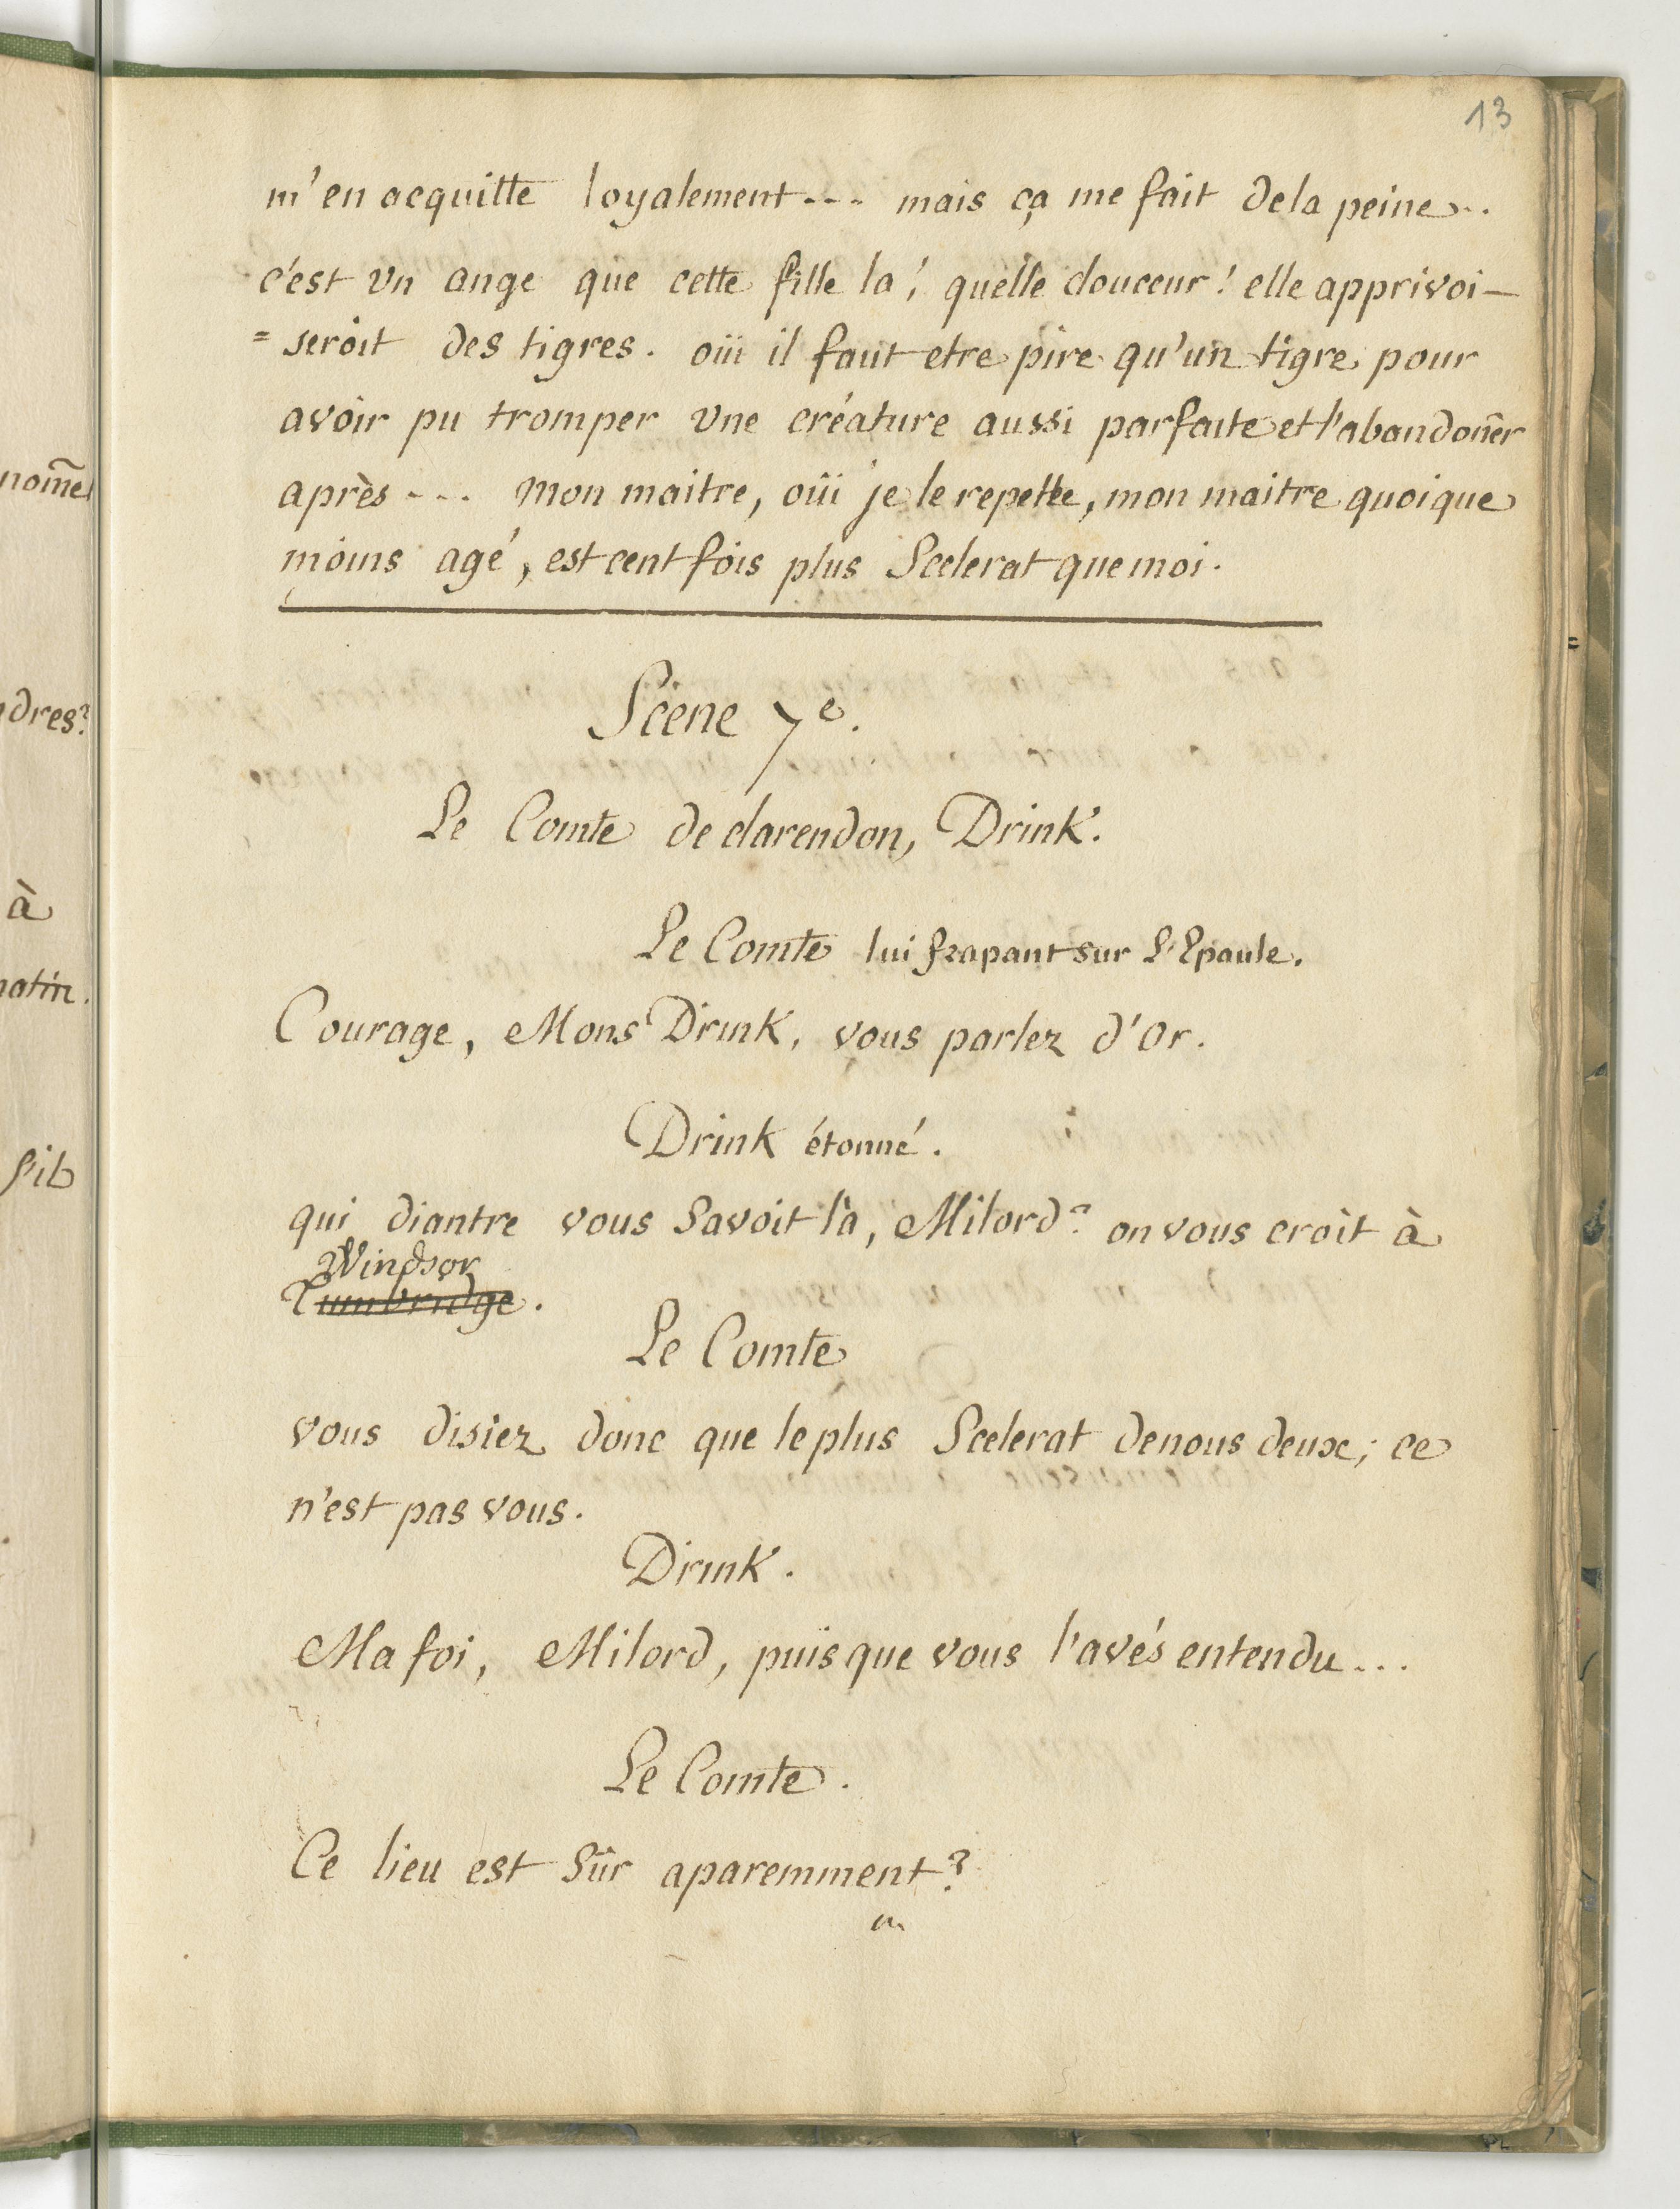 nom̃e
dres?
à
matin.
s'il
13
m'en acquitte loyalement--- mais ça me fait dela peine...
c'est un ange que cette fille la! quelle douceur! elle apprivoi-
=seroit des tigres. oüi il faut etre pire qu'un tigre pour
avoir pu tromper une créature aussi parfaite et l'abandoñer
après --- mon maitre, oüi je le repette, mon maitre quoique
moins agé, est cent fois plus Scelerat que moi.
Scene 7e.
Le Comte de clarendon, Drink.
Le Comte lui frapant sur L'Epaule.
Courage, Mons Drink, vous parlez d'Or.
Drink étonné.
qui diantre vous Savoit là, Milord? on vous croit à
Windsor
Tumbridge.
Le Comte
vous disiez donc que le plus Scelerat de nous deux; ce
n'est pas vous.
Drink.
Ma foi, Milord, puisque vous l'avés entendu...
Le Comte.
Ce lieu est Sûr aparemment?